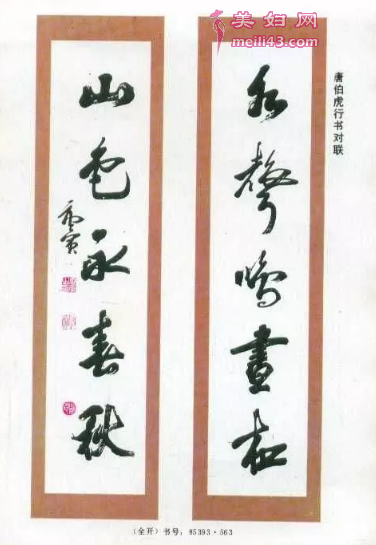 美妇网
meili43.com
唐伯虎行书对联
水聲鳴晝夜
山色永春秋
唐寅
（全开）书号：85393·563